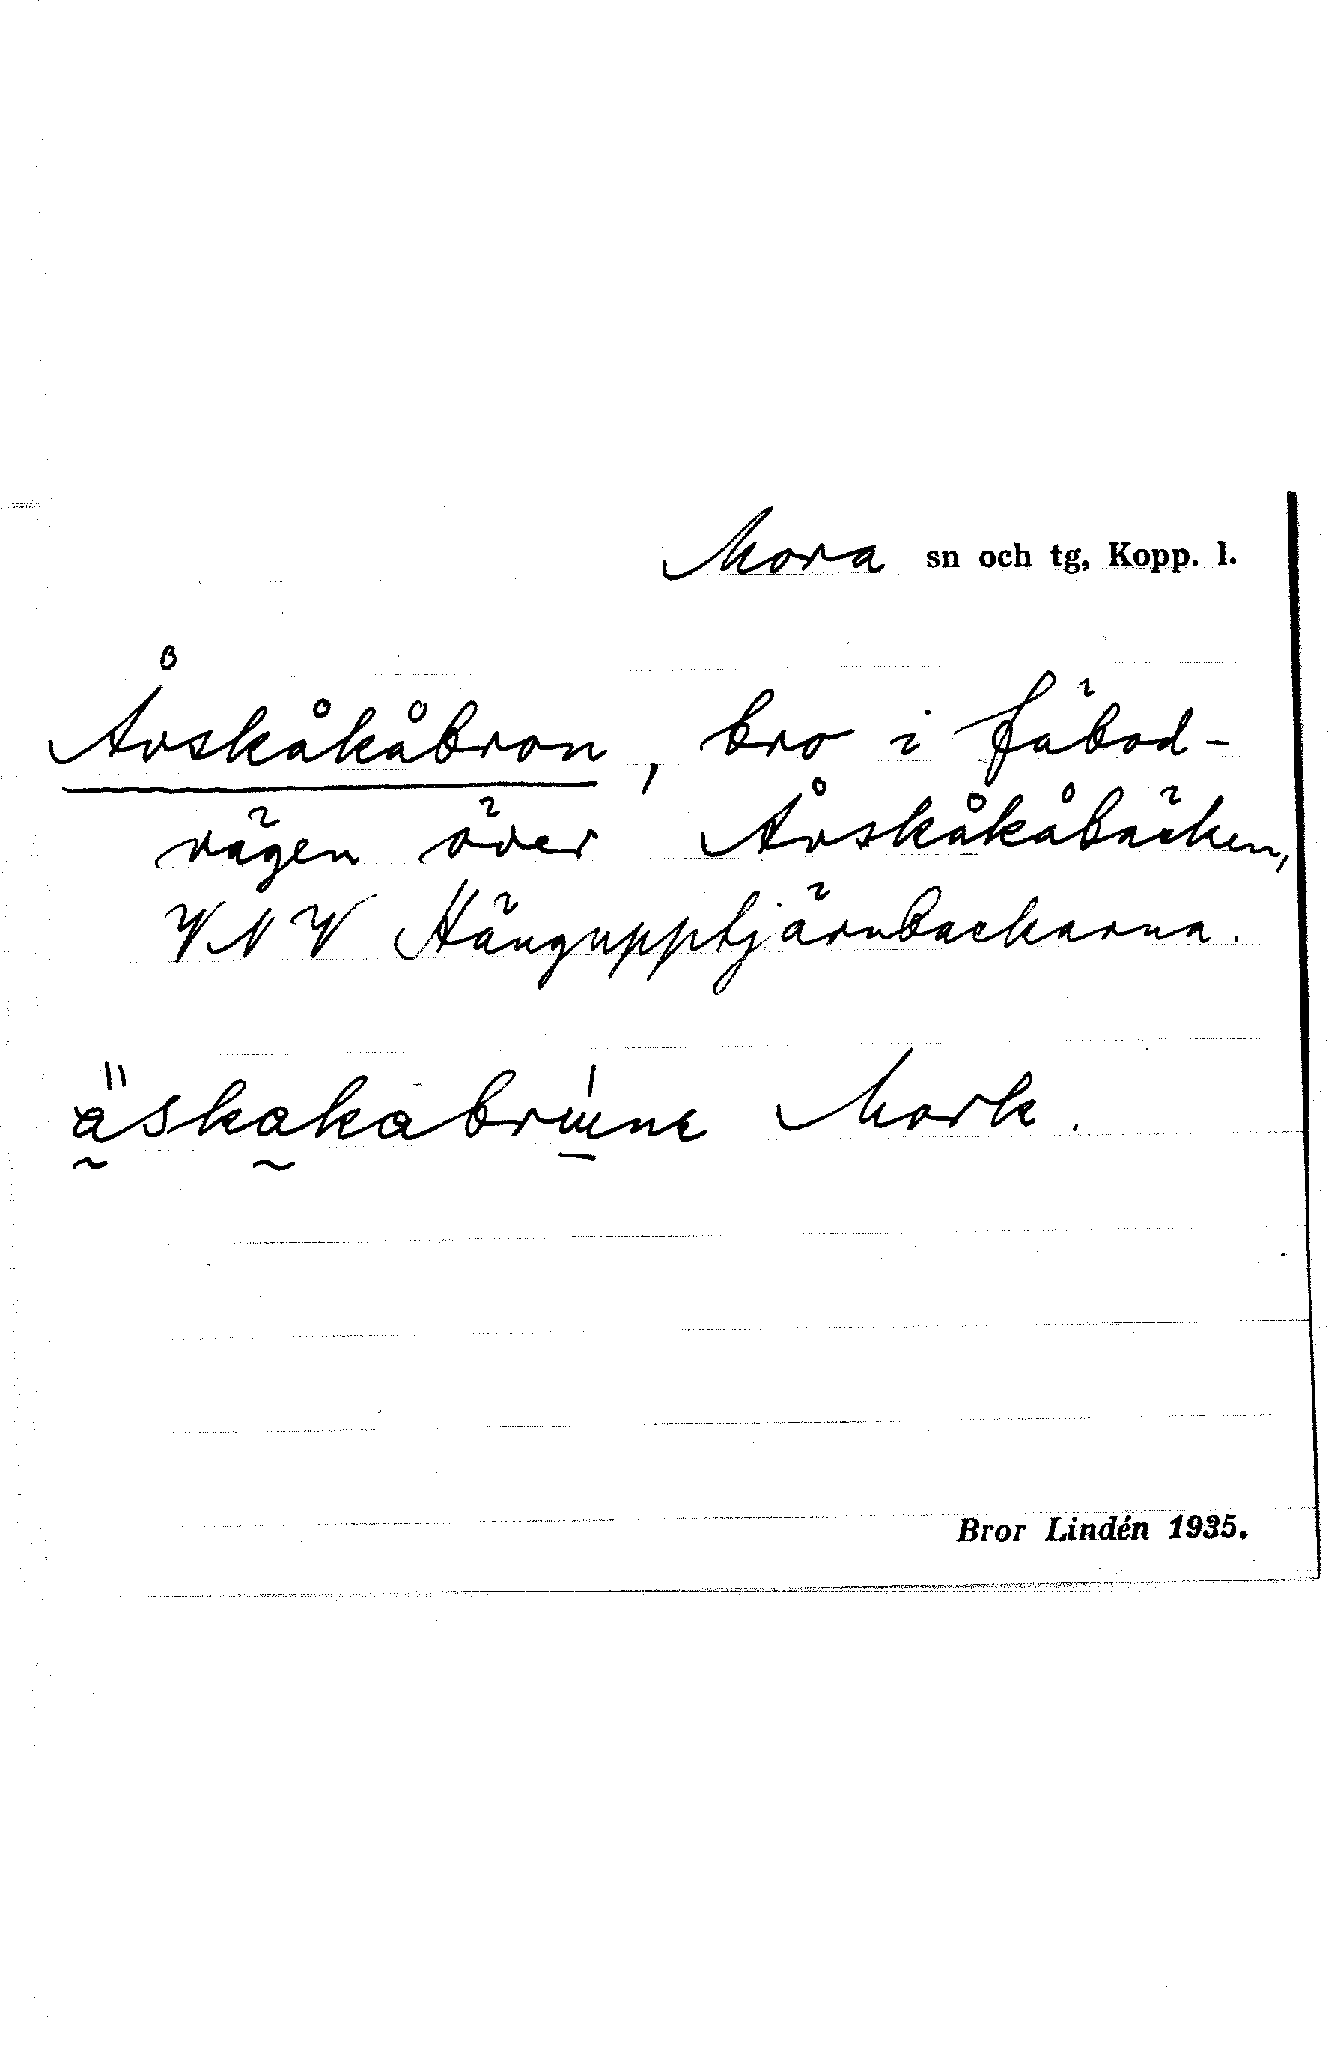 Mora sn och tg, Kopp. l.
Åvskåkåbron, bro i fäbod-
vägen över Åvskåkåbäcken,
VNV Hängupptjärnbackarna.
Mork.
Bror Lindén 1935.